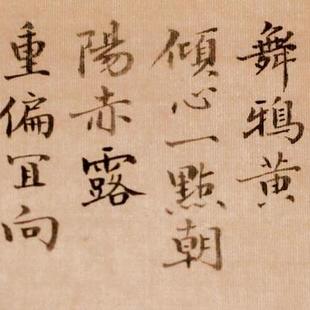 舞鴉黄
傾心一點朝
陽赤露
重偏冝向